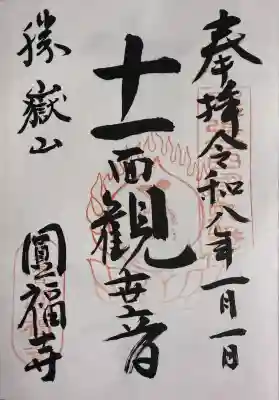 奉拝 令和八年一月一日
十一面観世音
勝嶽山
圓福寺